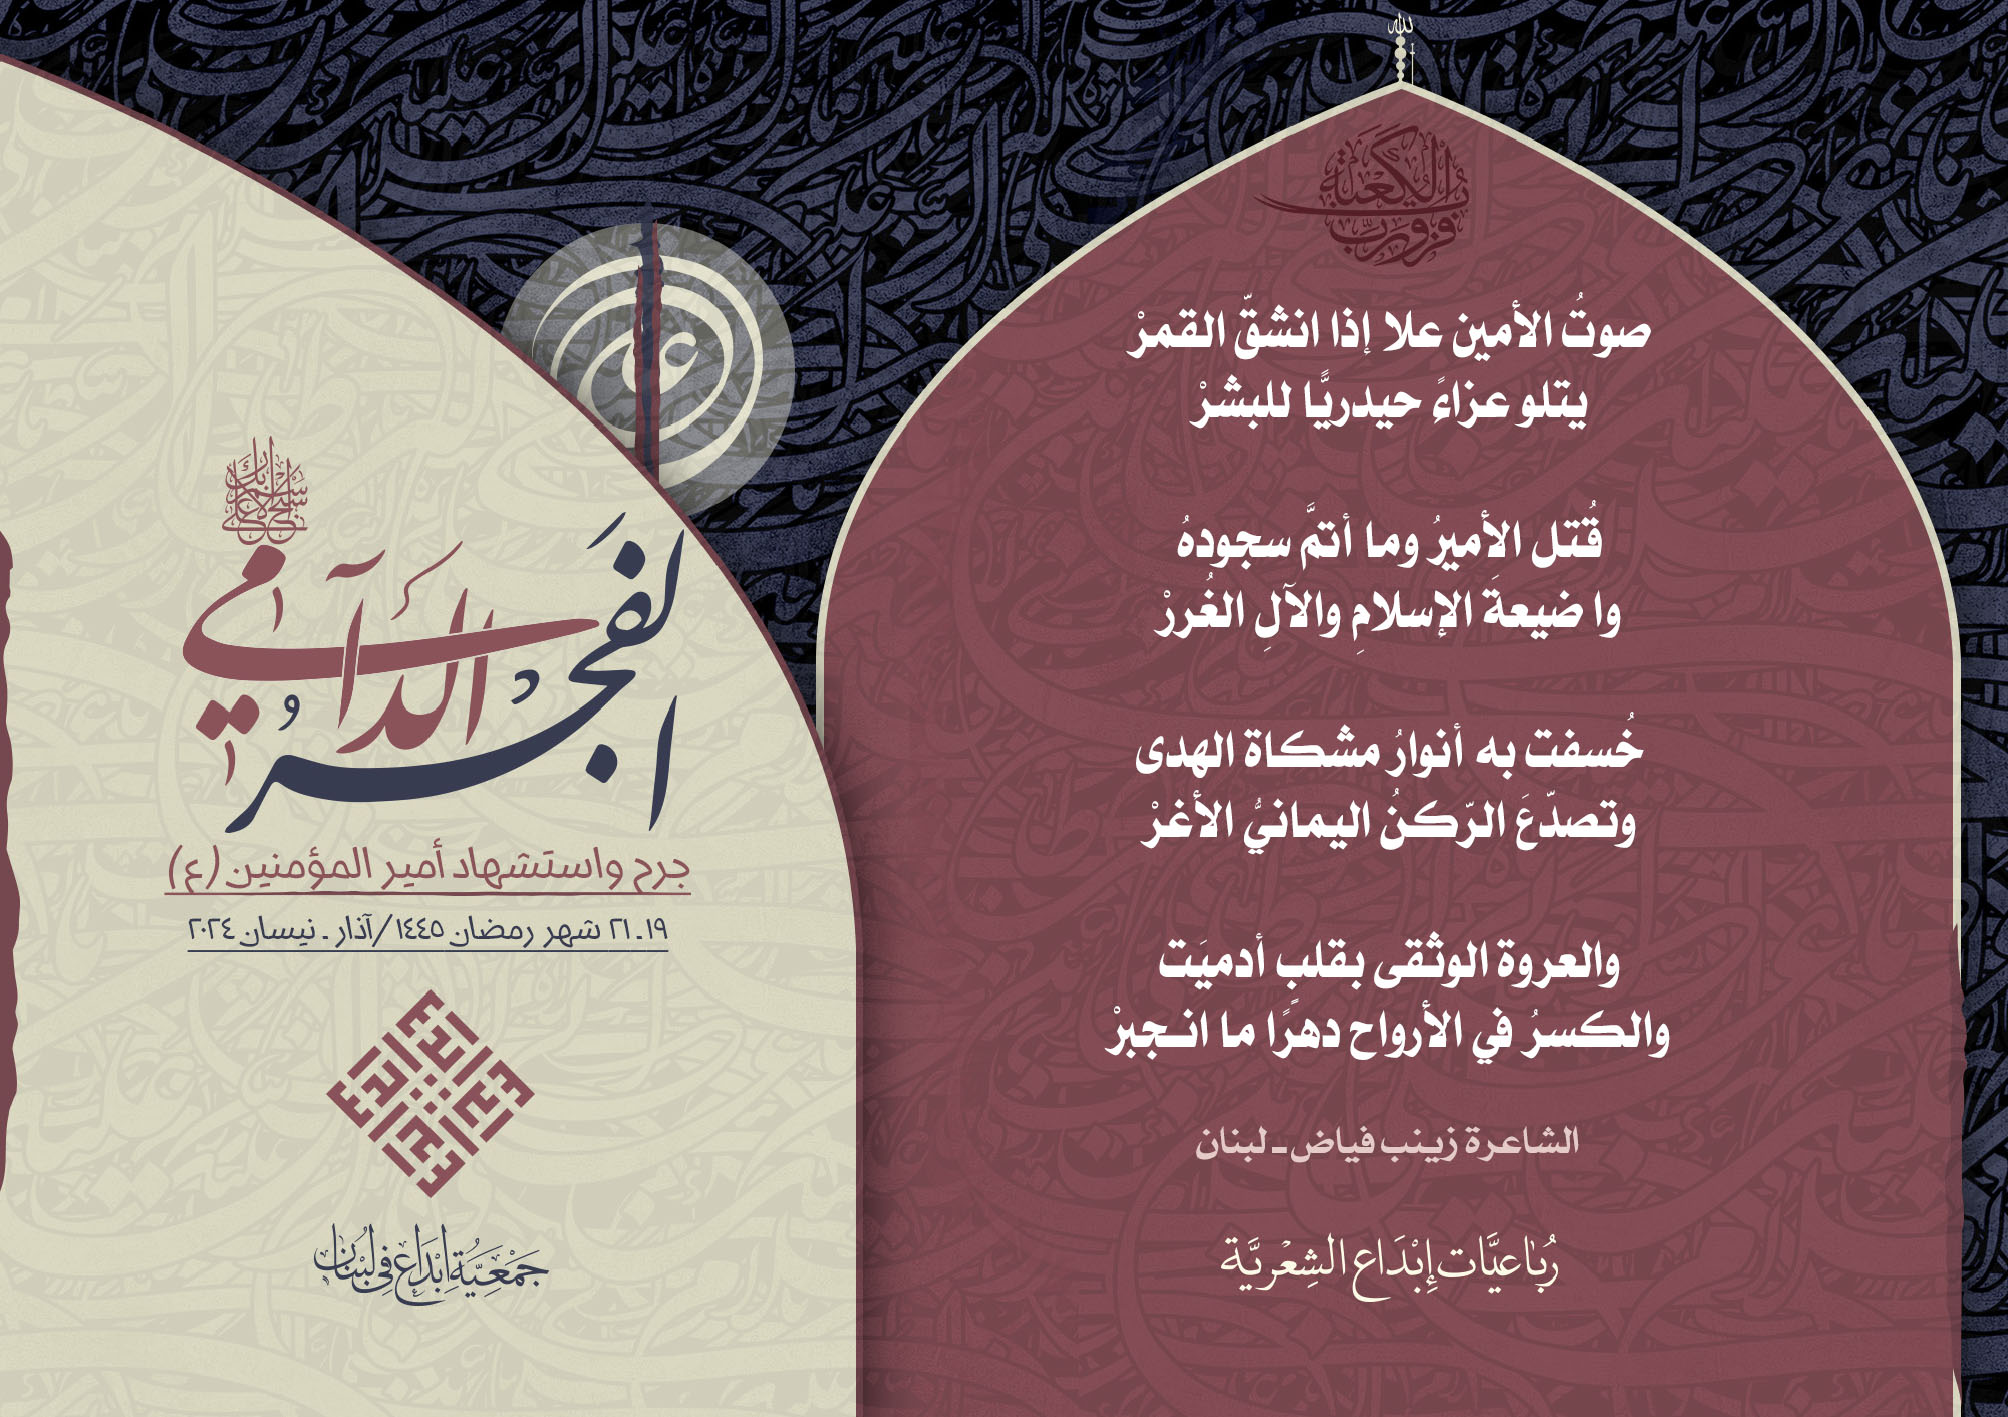 الله
فزت ورب الكعبة
صوتُ الأمين علا إذا انشقّ القمرْ
يتلو عزاءً حيدريًّا للبشرْ
قُتل الأميرُ وما أتمَّ سجودهُ
وا ضيعةَ الإسلامِ والآلِ الغُررْ
خُسفت به أنوارُ مشكاة الهدى
وتصدّعَ الرّكنُ اليمانيُّ الأغرْ
والعروة الوثقى بقلبٍ أدميَت
والكسرُ في الأرواح دهرًا ما انـجبرْ
الشاعرة زينب فياض ـ لبنان
رُبَاعيَّات إِبْدَاع الشِعْريَّة
علي
سبح اسم ربك الأعلى
الفَجرُ الدَّامي
جرح واستشهاد أمير المؤمنين (ع)
١٩ـ٢١ شهر رمضان ١٤٤٥/آذار ـ نيسان ٢٠٢٤
جَمْعِيَّةُ إِبْدَاع فِي لُبْنَان